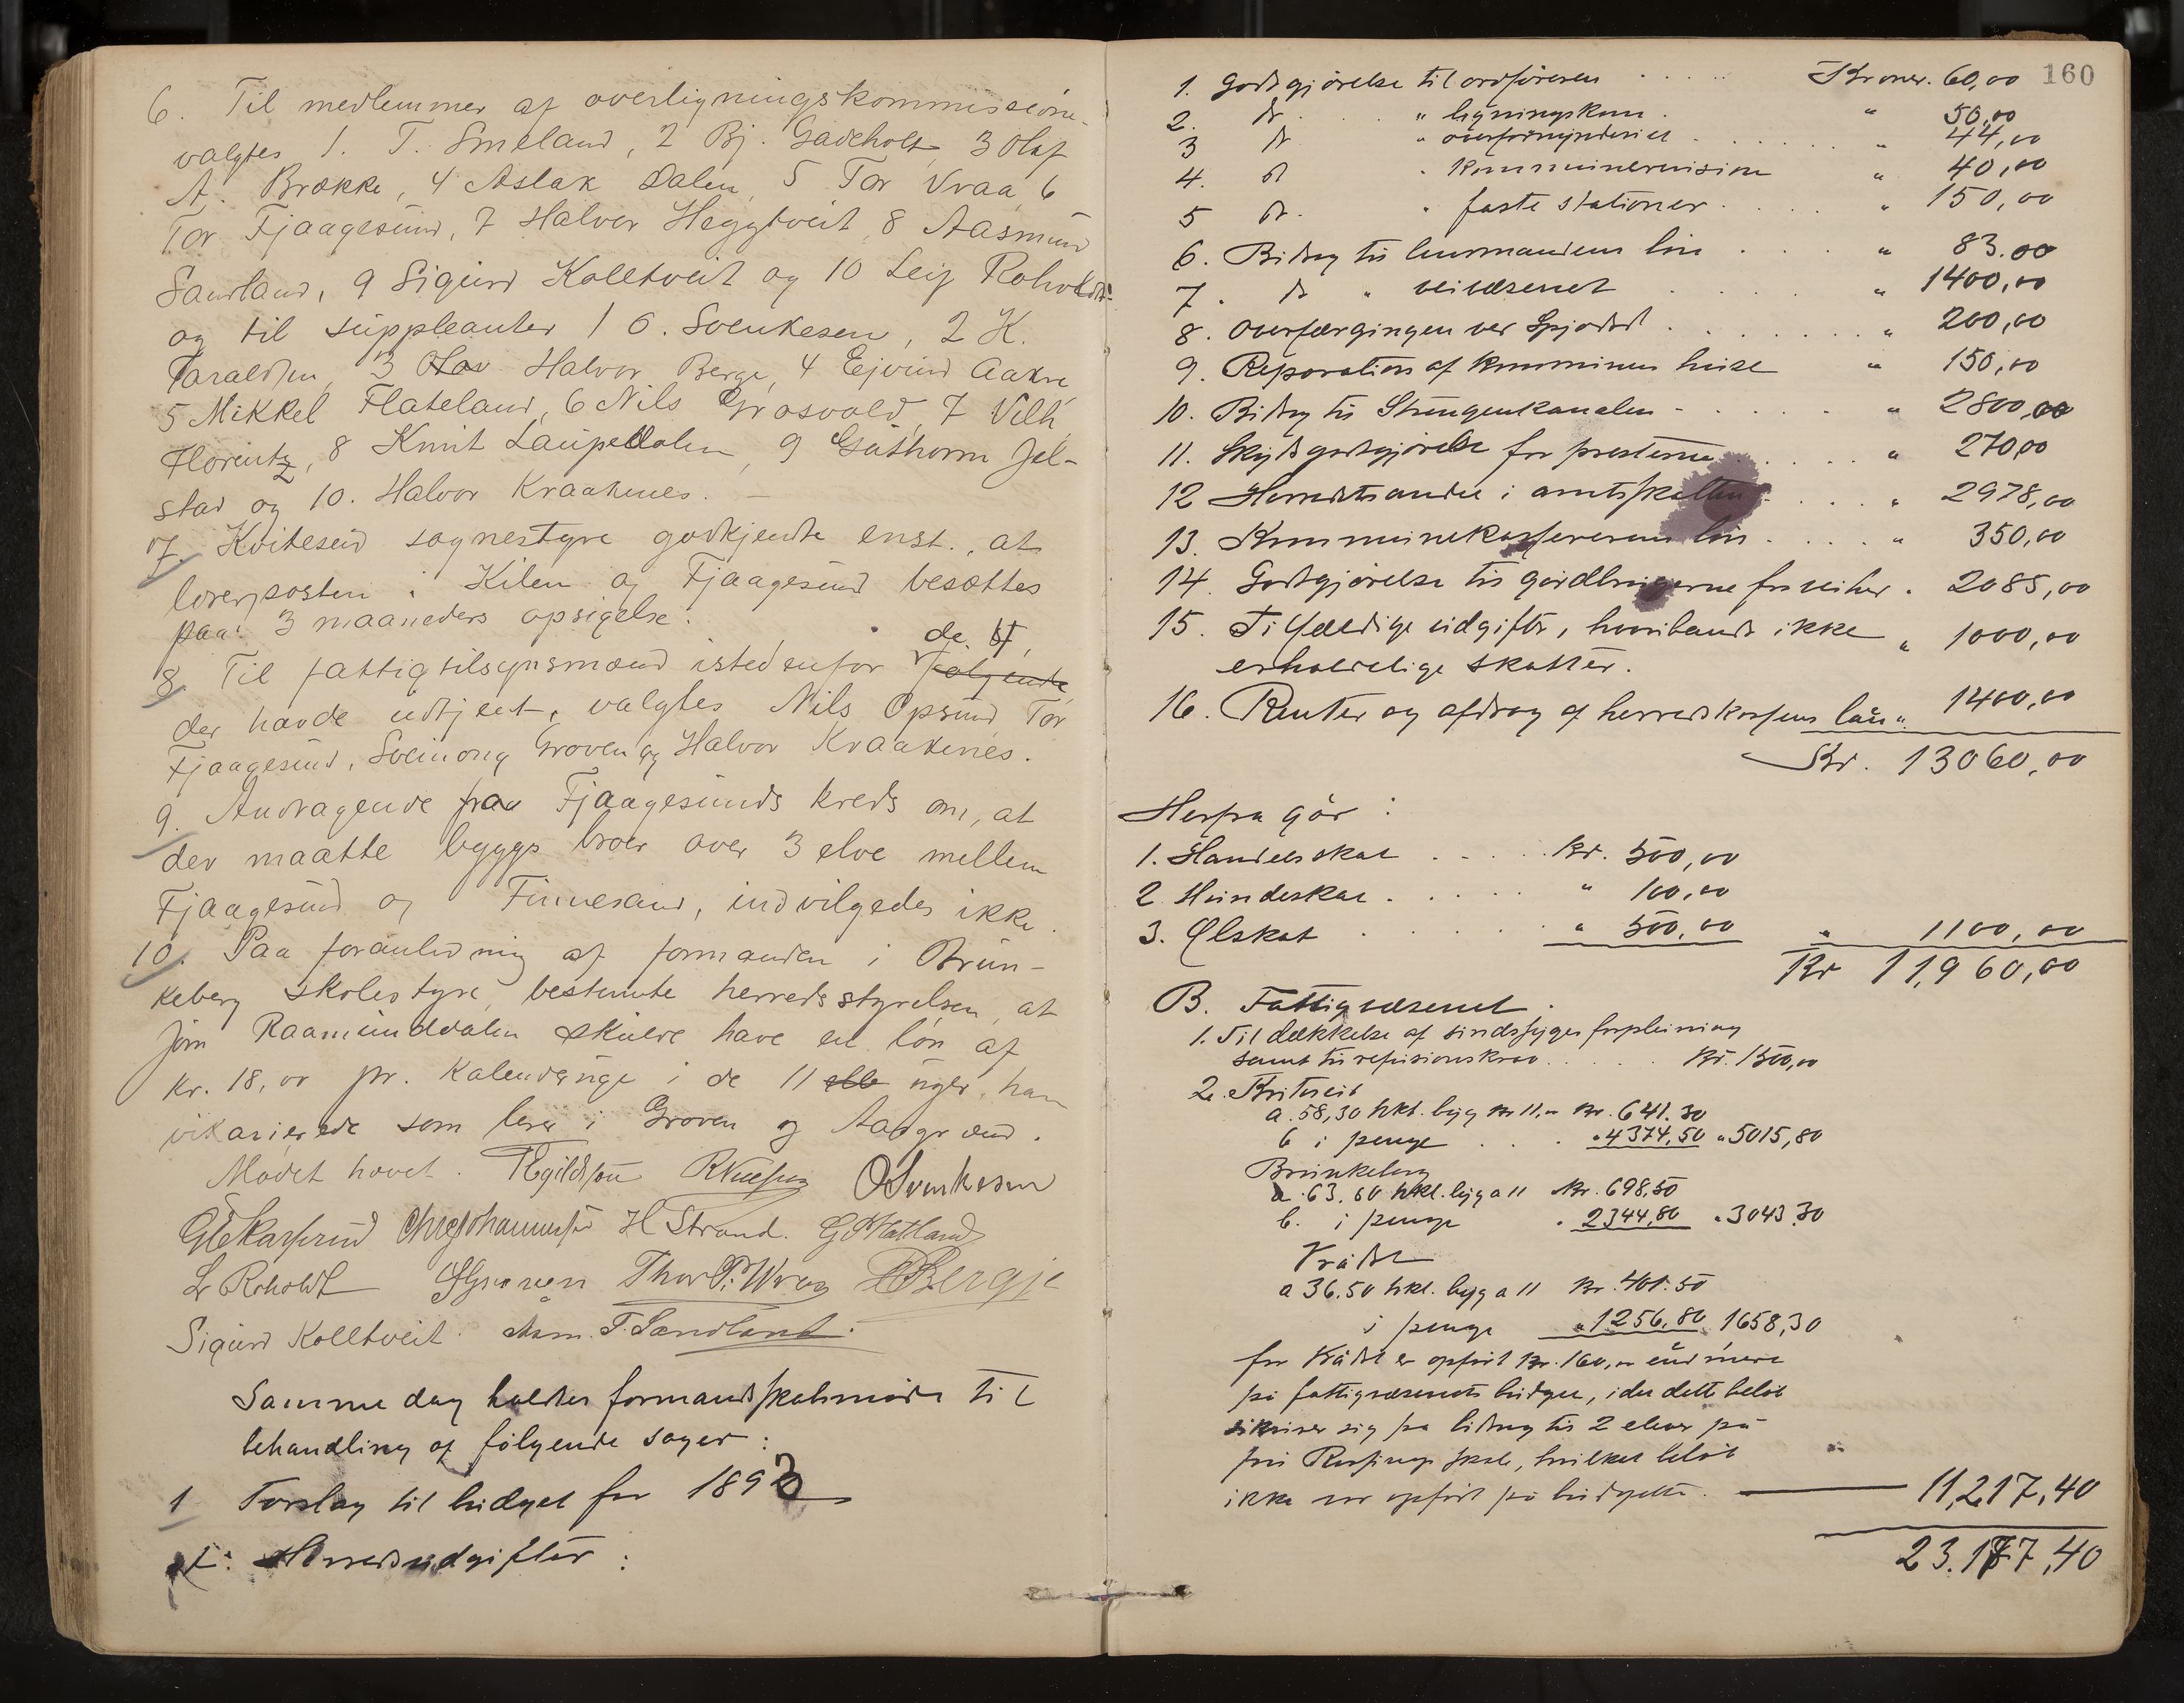 6. Til medlemmer af overligningskommissione-
valgtes 1. T. Smeland, 2 Bj. Gadeholt 3 Olaf
A. Brække, 4 Aslak Dalen, 5 Tor Vraa, 6
Tor Fjaagesund, 7 Halvor Heggtveit 8 Aasmund
Sandland, 9 Sigurd Kolltveit og 10 Leif Roholdt
og til suppleanter 1 O. Svenkesen, 2 K.
Taraldsen, 3 Halvor Berge, 4 Ejvind Aakre
5 Mikkel Flateland, 6 Nils Grosvold, 7 Vilh.
Florentz, 8 Knut Laupedalen, 9 Guthorm Jel-
stad og 10. Halvor Kraakenes. –
7. Kviteseid sognestyre godkjendte enst., at
lærerposten i Kilen og Fjaagesund besættes
paa 3 maaneders opsigelse.
8. Til fattigtilsynsmænd istedenfor de 4, følgende
der havde udtjent, valgtes Nils Opsund, Tor
Fjaagesund, Sveinong Groven og Halvor Kraakenes.
9. Andragende fra Fjaagesunds kreds om, at
der maatte bygges broer over 3 elve mellem
Fjaagesund og Finnesand, indvilgedes ikke.
10. Paa foranledning af formanden i Brun-
keberg skolestyre, bestemte herredsstyrelsen, at
Jøn Raamunddalen skulde have en løn af
kr. 18,00 pr. Kalenduge i de 11 elle uger, han
vikarierede som lærer i Groven og Aasgrend.
Mødet hævet. TEgildson O Svenkesen
H Strand. G Hatland
L Roholdt Thor P. Wraa Bergje
Sigurd Kolltveit. Asm. T. Sandland.
Samme dag holdtes formandskabsmøde til
behandling af følgende sager:
1 Forslag til budget for 1893
A: Herredsudgifter:
160
1. Godtgjørelse til ordføreren . . . . Kroner. 60,00
2. dt . . " ligningskom . " 50,00
3 dt " overformynderiet . . . . " 44,00
4. dt " kommunerevision " 40,00
5 dt. " faste stationer . . . " 150,00
6. Bidrag til lensmandens løn . . . " 83.00
7. dt " veivæsenet . . . . " 1400,00
8. Overfærgingen ved Spjodsd . . . . " 200,00
9. Reparation af kommunens huse " 150,00
10. Bidrag til Strængenkanalen - . . . . " 2800,00
11. Skydsgodtgjørelse for presterne . . . . " 270,00
12 Herredets andel i amtsskatten . . . . " 2978,00
13. Kommunekassererens løn . . . . " 350,00
14. Godtgjørelse til gårdbrugerne for veiher . 2085,00
15. Tilfældige udgifter, hvoriblandt ikke " 1000,00
erholdelige skatter.
16. Renter og afdrag af herredskassens lån " 1400,00
Kr. 13060,00
Herfra går:
1. Handelsskat . . . . Kr. 500,00
2 Hundeskat . . . . " 100,00
3. Ølskat . . . . " 500,00 " 1100,00
Kr 11,960,00
B. Fattigvæsenet.
1. Til dækkelse af sindssyges forpleining
samt til refusionskrav . . . . Kr. 1500,00
2. Kviteseid
a. 58,30 hkt. byg kr 11,00 Kr. 641.30
b i penge . . . " 4374,50 " 5015,80
Brunkeberg
a. 63.50 hkl. byg a 11 Kr. 698,50
b. i penge " 2344,80 " 3043.30
Vrådal
a 36.50 hkl. byg a 11 Kr. 401.50
i penge " 1256,80 1658,30
for Vrådal er opført kr. 160,00 end mere
på fattigvæsenets budget, idet dette beløb
skriver sig fra bidrag til 2 elever på
fru skole, hvilket beløb
ikke var opført på budgettet. — 11,217,40
23.177,40